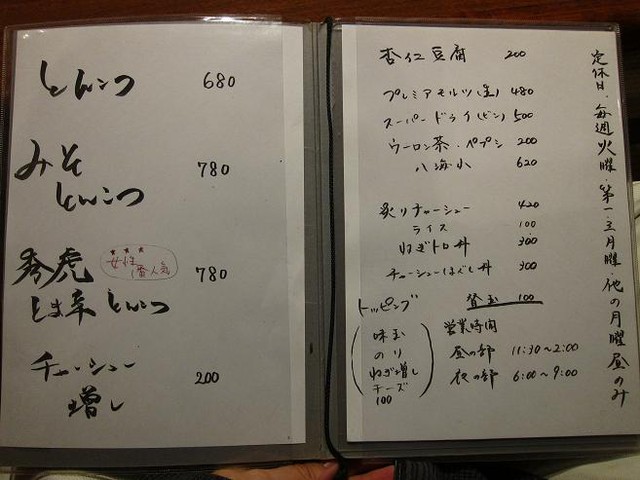 とんこつ 680
みそ
とんこつ 780
秀虎
女性
一番人気
とま辛 とんこつ 780
チャーシュー
増し 200
杏仁豆腐 200
プレミアモルツ(生) 480
スーパードライ(ビン) 500
ウーロン茶・ペプシ 200
八海山 620
炙りチャーシュー 420
ライス 100
ねぎトロ丼 300
チャーシューほぐし丼 300
替玉 100
トッピング
味玉
のり
ねぎ増し
チーズ
100
営業時間
昼の部 11:30~2:00
夜の部 6:00~9:00
定休日、毎週火曜・第一・三月曜・他の月曜昼のみ